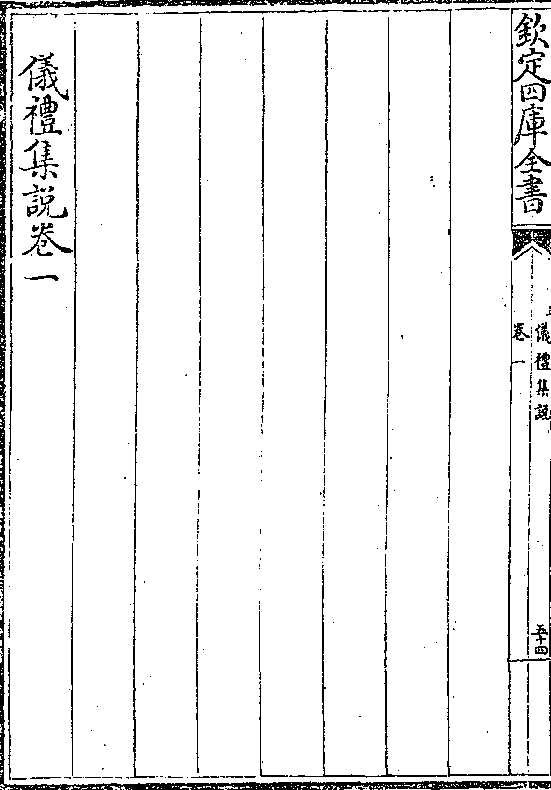 欽定四庫全書
儀禮集說
卷一
五十四
儀禮集說卷一